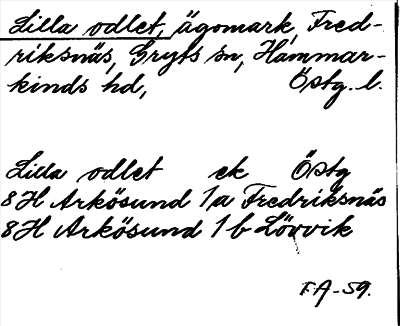 Lilla odlet, ägomark, Fred-
riksnäs, Gryts sn, Hammar-
kinds hd, Östg. l.
Lilla odlet ek Östg
8H Arkösund 1a Fredriksnäs
8H Arkösund 1b Lövvik
F.A-59.